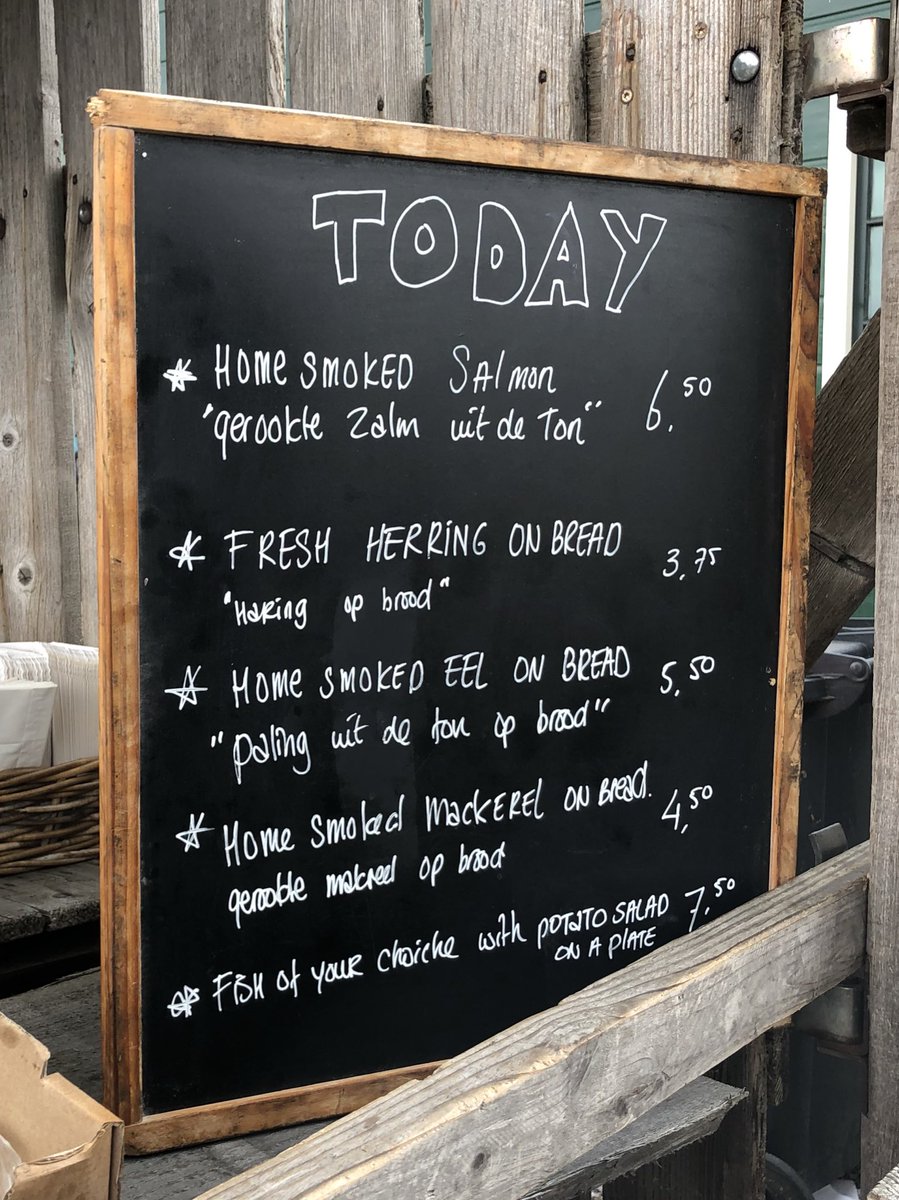 TODAY
* HOME SMOKED SALmon 6,50
"gerookte Zalm uit de Ton"
* FRESH HERRING ON BREAD 3,75
"Haring op brood"
* HOME SMOKED EEL ON BREAD 5,50
"paling uit de ton op brood"
* Home Smoked MACKEREL ON BREad. 4,50
gerookte makreel op brood
* FISH of your choiche with POTATO SALAD 7,50
ON A PLATE